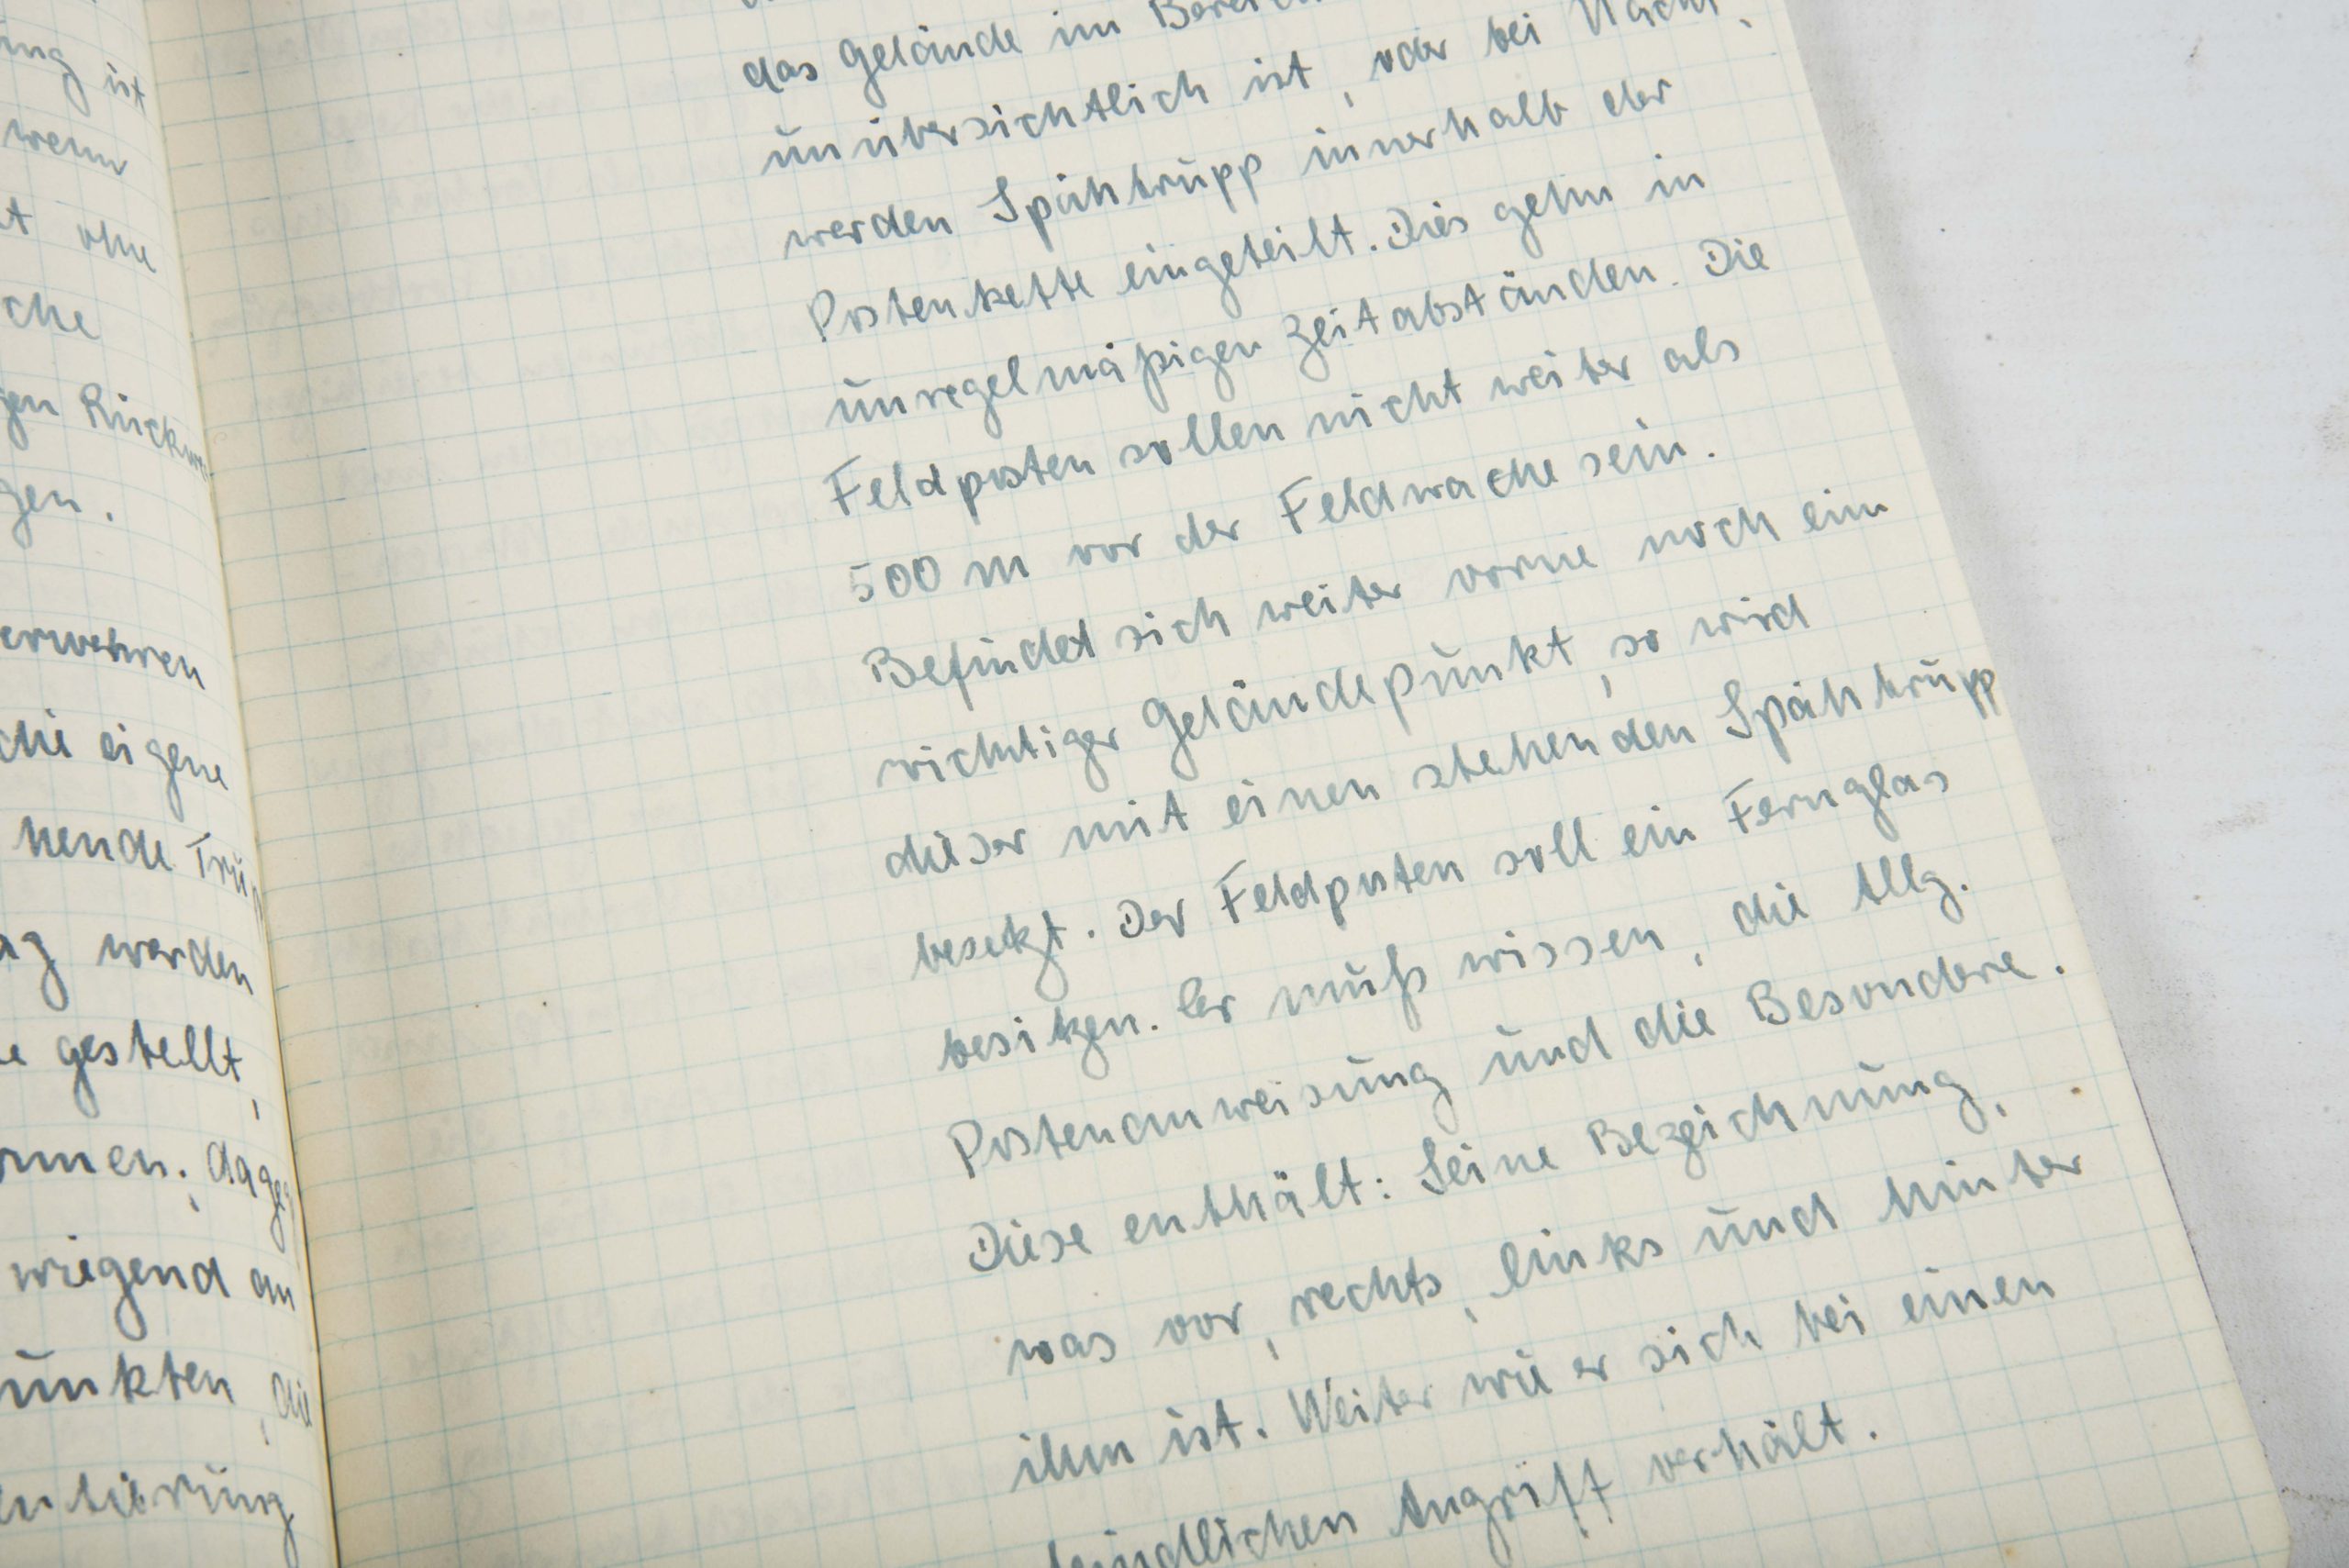 ung ist
wenn
t ohne
che
gen Rückweg
gen.
erwehren
die eigene
hende Trup
ag werden
e gestellt,
nnen; dagge
wiegend an
unkten, die
entierung
das Gelände im Bereich
unübersichtlich ist, oder bei Nacht,
werden Spähtrupp innerhalb der
Postenkette eingeteilt. Dies gehn in
unregelmäßigen Zeitabständen. Die
Feldposten sollen nicht weiter als
500 m vor der Feldwache sein.
Befindet sich weiter vorne noch ein
wichtiger Geländepunkt, so wird
dieser mit einen stehenden Spähtrupp
besetzt. Der Feldposten soll ein Fernglas
besitzen. Er muß wissen, die Allg.
Postenanweisung und die Besondere.
Diese enthält: Seine Bezeichnung,
was vor, rechts, links und hinter
ihm ist. Weiter wie er sich bei einen
feindlichen Angriff verhält.